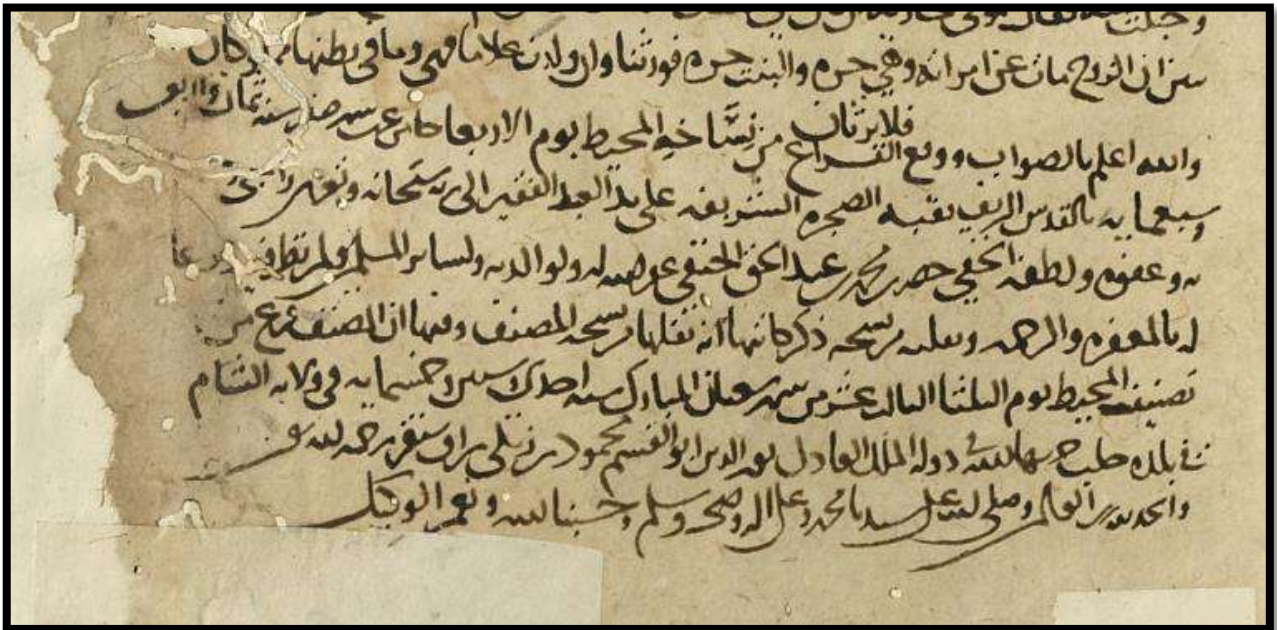 ان الزوج مات عن امرأته وهي حرة والبنت حرة فورثتا وان ولدت غلاما فهي وما في بطنها
فلا يرثان
والله اعلم بالصواب ووقع الفراغ من نساخة المحيط يوم الاربعا خامس عشر شهر صفر سنة ثمان واربع
وسبعمايه بالقدس الشريف بقبة الصخره الشريفه على يد العبد الفقير الى الله سبحانه وتعالى
وعفوه ولطفه الخفي محمد بن عبد الحق الحنفي عفا الله له ولوالديه ولساير المسلمين ولمن نظر فيه ودعا
له بالمغفره والرحمه ونقلت من نسخه ذكر كاتبها انه نقلها من نسخه المصنف وفيها ان المصنف فرغ من
تصنيف المحيط يوم الثلثا الثالث عشر من شهر رمضان المبارك سنه احدى وخمسمايه في ولاية الشام
في بلده حلب حرسها الله في دوله الملك العادل نور الدين ابو القسم محمود بن زنكي بن اق سنقر رحمه الله
والحمد لله رب العالمين وصلى الله على سيدنا محمد وعلى اله وصحبه وسلم وحسبنا الله ونعم الوكيل